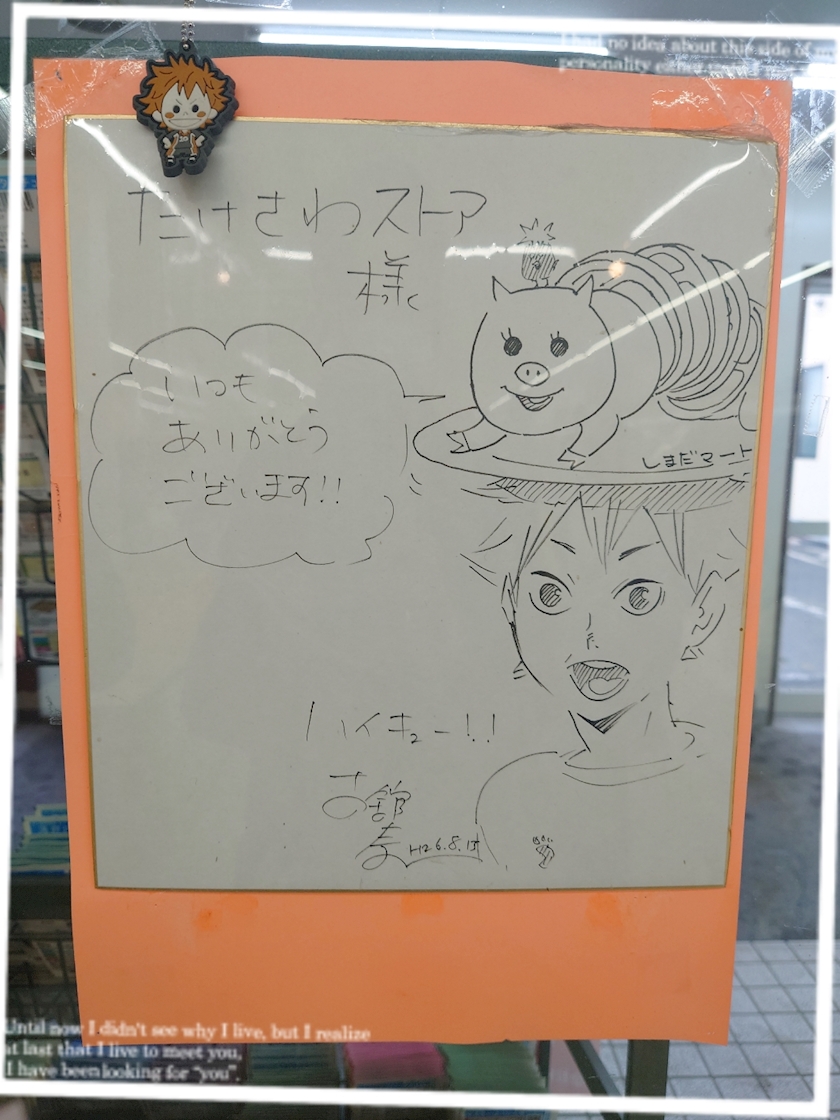 no idea about this side of
personality
たけさわストア
様
いつも
ありがとう
ございます!!
しまだマート
ハイキュー!!
古舘
春
H26.8.15
Until now I didn't see why I live, but I realize
at last that I live to meet you,
I have been looking for "you".